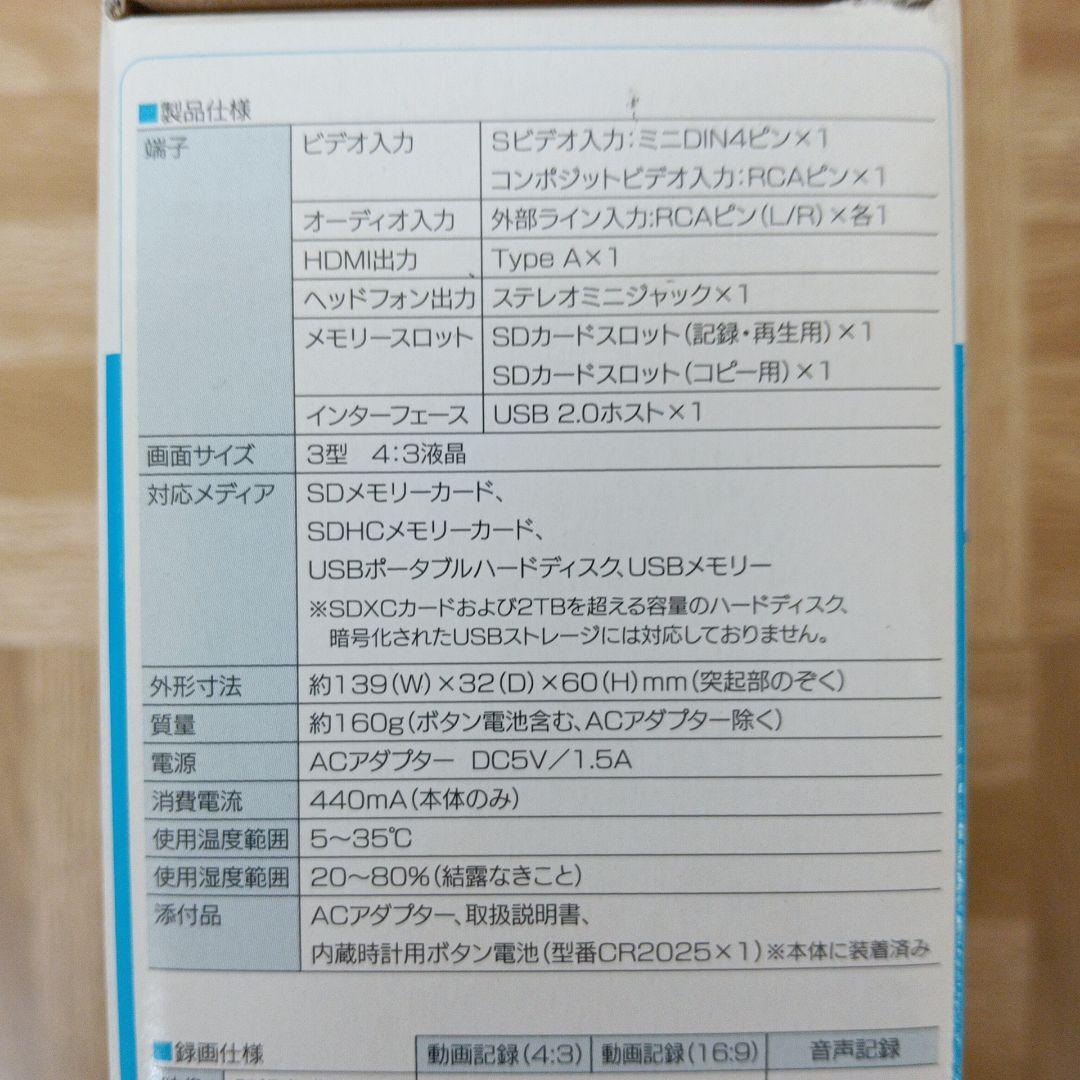 ■製品仕様
端子 ビデオ入力 Sビデオ入力:ミニDIN4ピン×1
コンポジットビデオ入力:RCAピン×1
オーディオ入力 外部ライン入力:RCAピン(L/R)×各1
HDMI出力 Type A×1
ヘッドフォン出力 ステレオミニジャック×1
メモリースロット SDカードスロット(記録・再生用)×1
SDカードスロット(コピー用)×1
インターフェース USB 2.0ホスト×1
画面サイズ 3型 4:3液晶
対応メディア SDメモリーカード、
SDHCメモリーカード、
USBポータブルハードディスク、USBメモリー
※SDXCカードおよび2TBを超える容量のハードディスク、
暗号化されたUSBストレージには対応しておりません。
外形寸法 約139(W)×32(D)×60(H)mm(突起部のぞく)
質量 約160g(ボタン電池含む、ACアダプター除く)
電源 ACアダプター DC5V/1.5A
消費電流 440mA(本体のみ)
使用温度範囲 5~35℃
使用湿度範囲 20~80%(結露なきこと)
添付品 ACアダプター、取扱説明書、
内蔵時計用ボタン電池(型番CR2025×1)※本体に装着済み
■録画仕様 動画記録(4:3) 動画記録(16:9) 音声記録